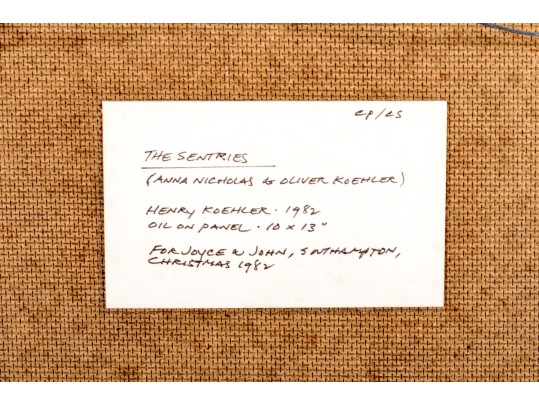 CP/CS
THE SENTRIES
(ANNA NICHOLAS & OLIVER KOEHLER)
HENRY KOEHLER · 1982
OIL ON PANEL · 10 X 13"
FOR JOYCE & JOHN, SOUTHAMPTON,
CHRISTMAS 1982